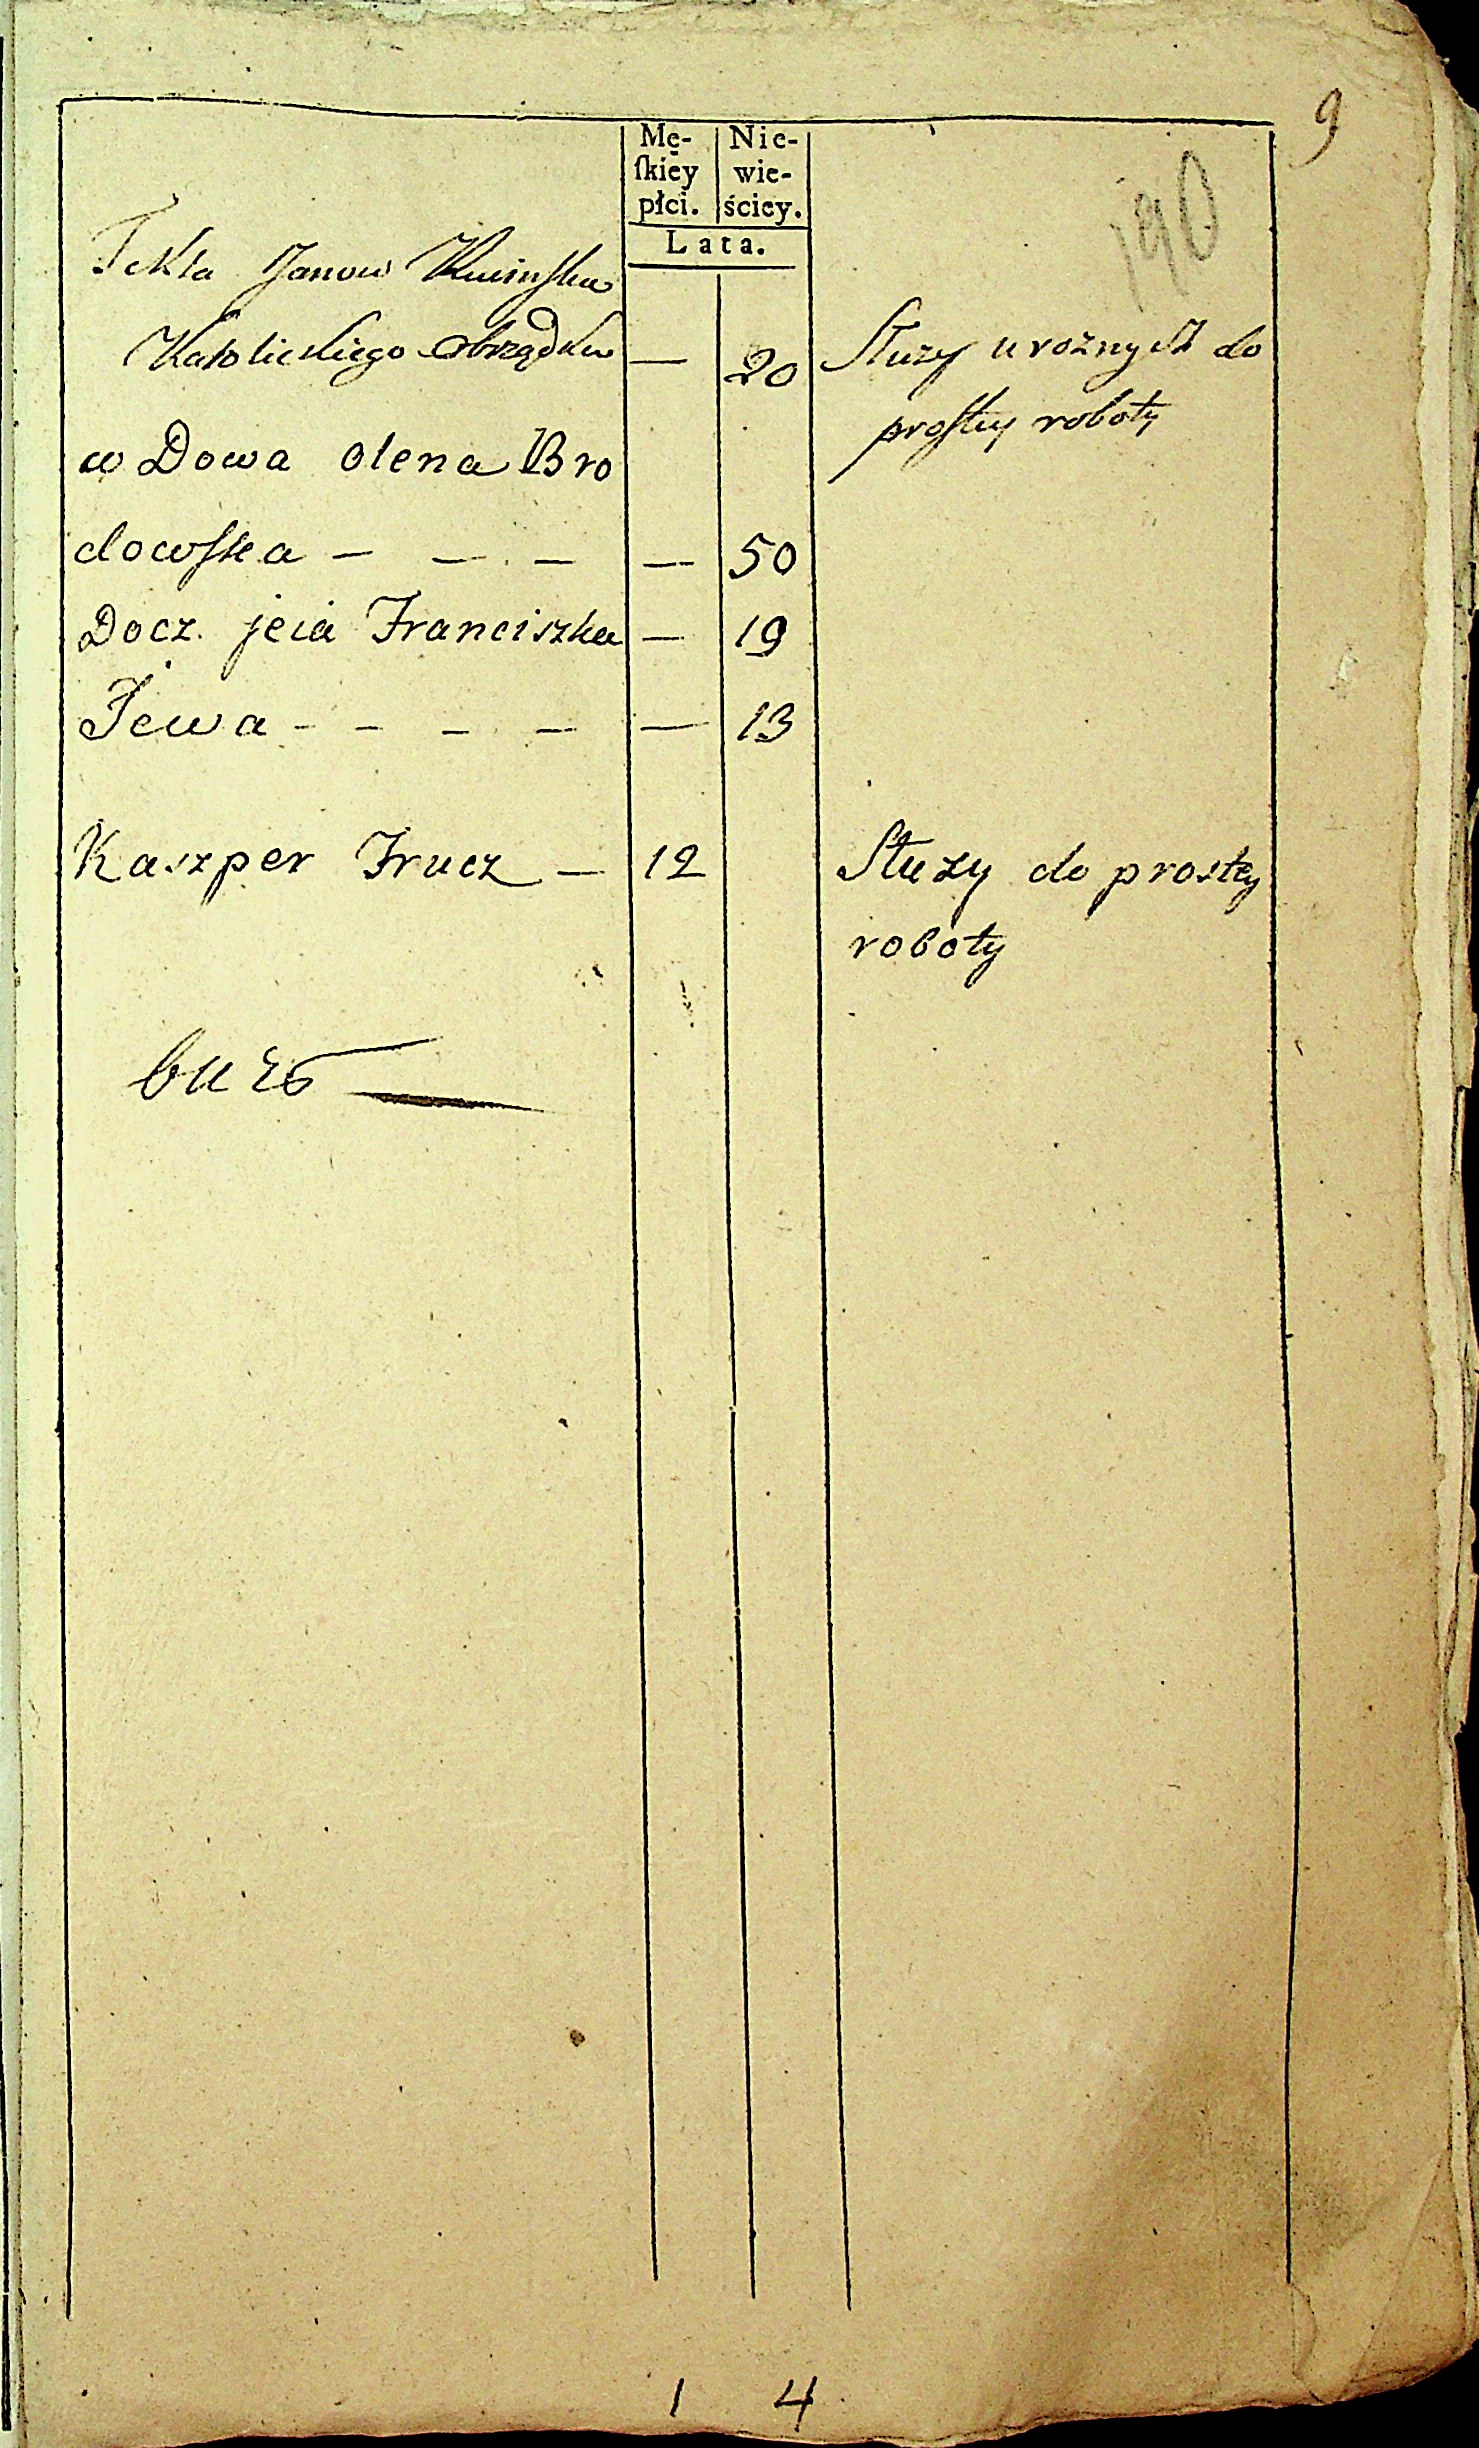 9
190
Mę- Nie-
ſkiey wie-
płci. ściey.
Lata.
Tekla Janow
Katolickiego obrządku — 20 Służy u rożnych do
prostey roboty
wDowa Olena Bro
dowska — — — — 50
Docz. jeia Franciszka — 19
Jewa - - - — — 13
Kaszper Frucz — 12 Służy do prostey
roboty
1 4